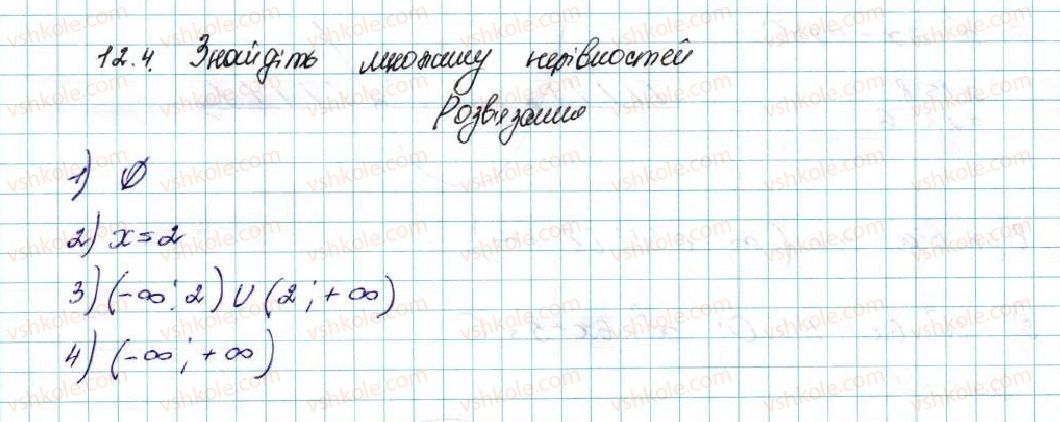 12.4. Знайдіть множину нерівностей
Розв'язання
1) ∅
2) x = 2
3) (-∞; 2) ∪ (2; +∞)
4) (-∞; +∞)